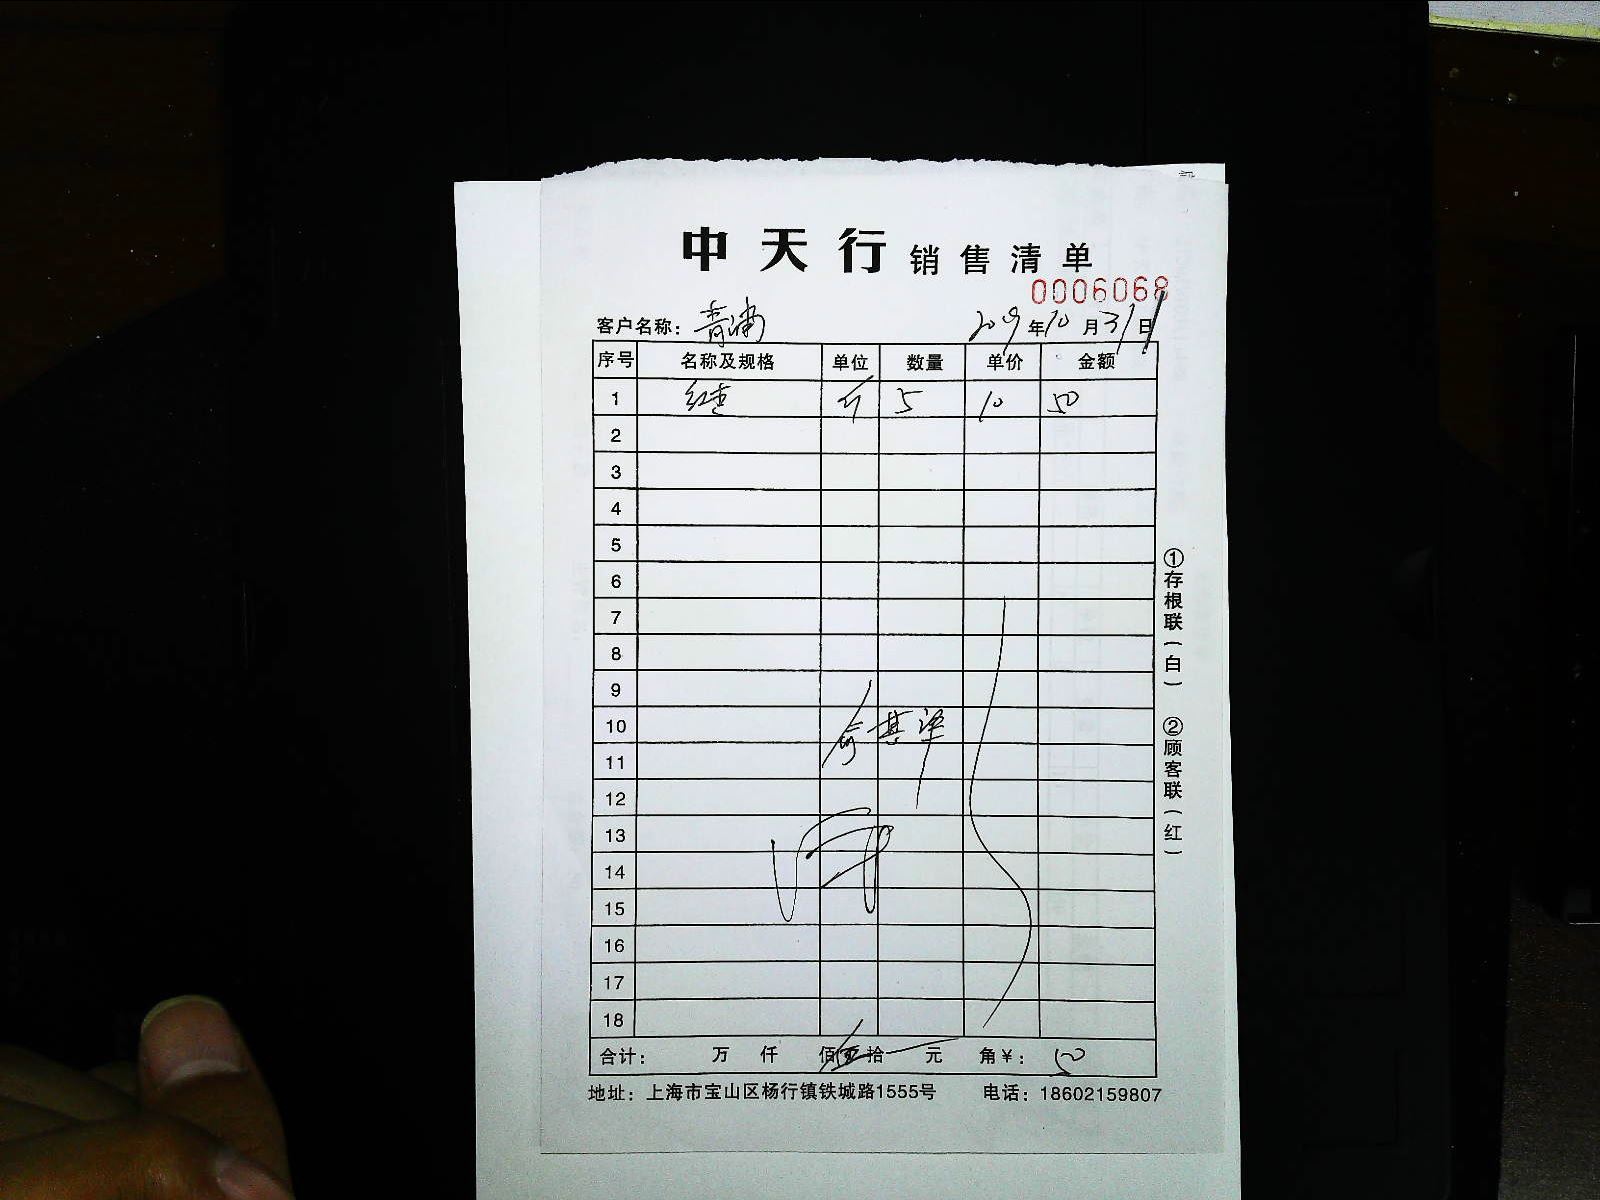 中天行 销售清单
0006068
客户名称: 青浦 2019年10月31日
序号 名称及规格 单位 数量 单价 金额
1 斤 5 10 50
2
3
4
5
6
7
8
9
10
11
12
13
14
15
16
17
18
合计: 万 仟 佰 伍 拾 元 角 ¥: 50
地址: 上海市宝山区杨行镇铁城路1555号 电话: 18602159807
①存根联(白) ②顾客联(红)